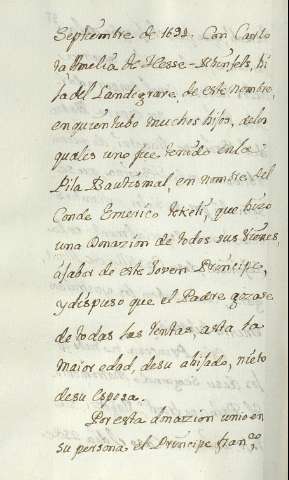 Septiembre de 1694. Con Carlo
ta Amelia de Hesse-Rhinfels, hi
ja del Landgrave de este nombre,
en quien tubo muchos hijos, delos
quales uno fue tenido en la
Pila Bautismal, en nombre del
Conde Emerico Tekeli, que hizo
una Donazion de todos sus Vienes
á fabor de este Joven Principe,
y dispuso que el Padre gozase
de todas las rentas, asta la
maior edad, de su ahijado, nieto
de su esposa.
Por esta donazion unio en
su persona el Principe Franco